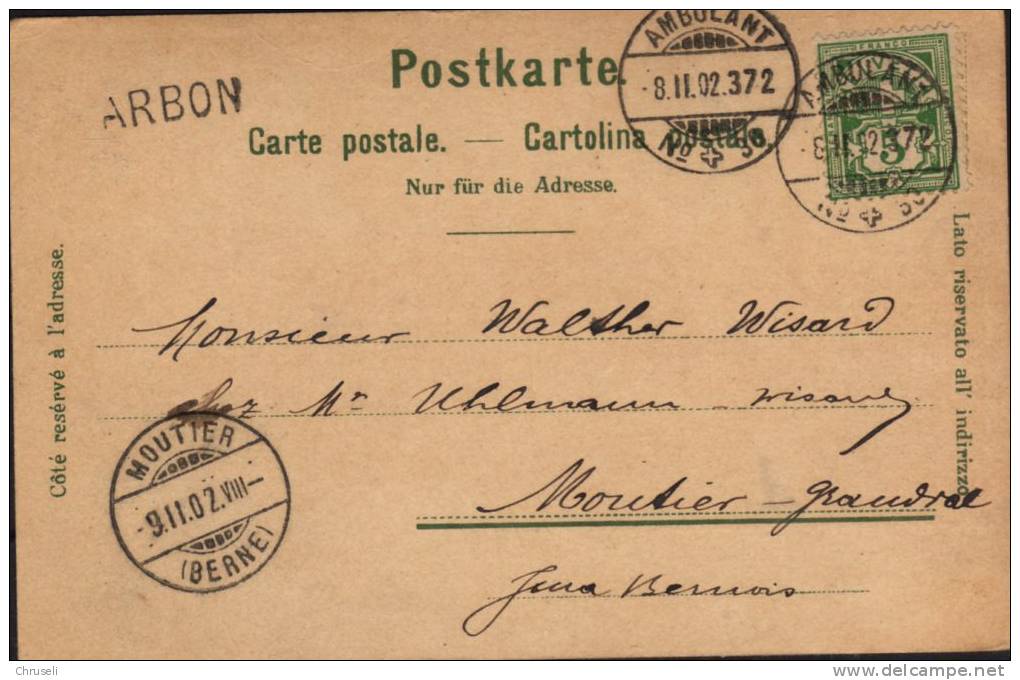 ARBON
Postkarte.
AMBULANT
8.II.02.372
No 36
FRANCO
5
AMBULANT
8.II.02.372
No 36
Carte postale. — Cartolina postale.
Nur für die Adresse.
Côté resérvé à l'adresse.
Lato riservato all' indirizzo
Monsieur Walther Wisard
chez Mr Uhlmann - Wisard
Moutier - Grandval
Jura Bernois
MOUTIER
-9.II.02.VIII-
(BERNE)
Chruseli
delcampe.net